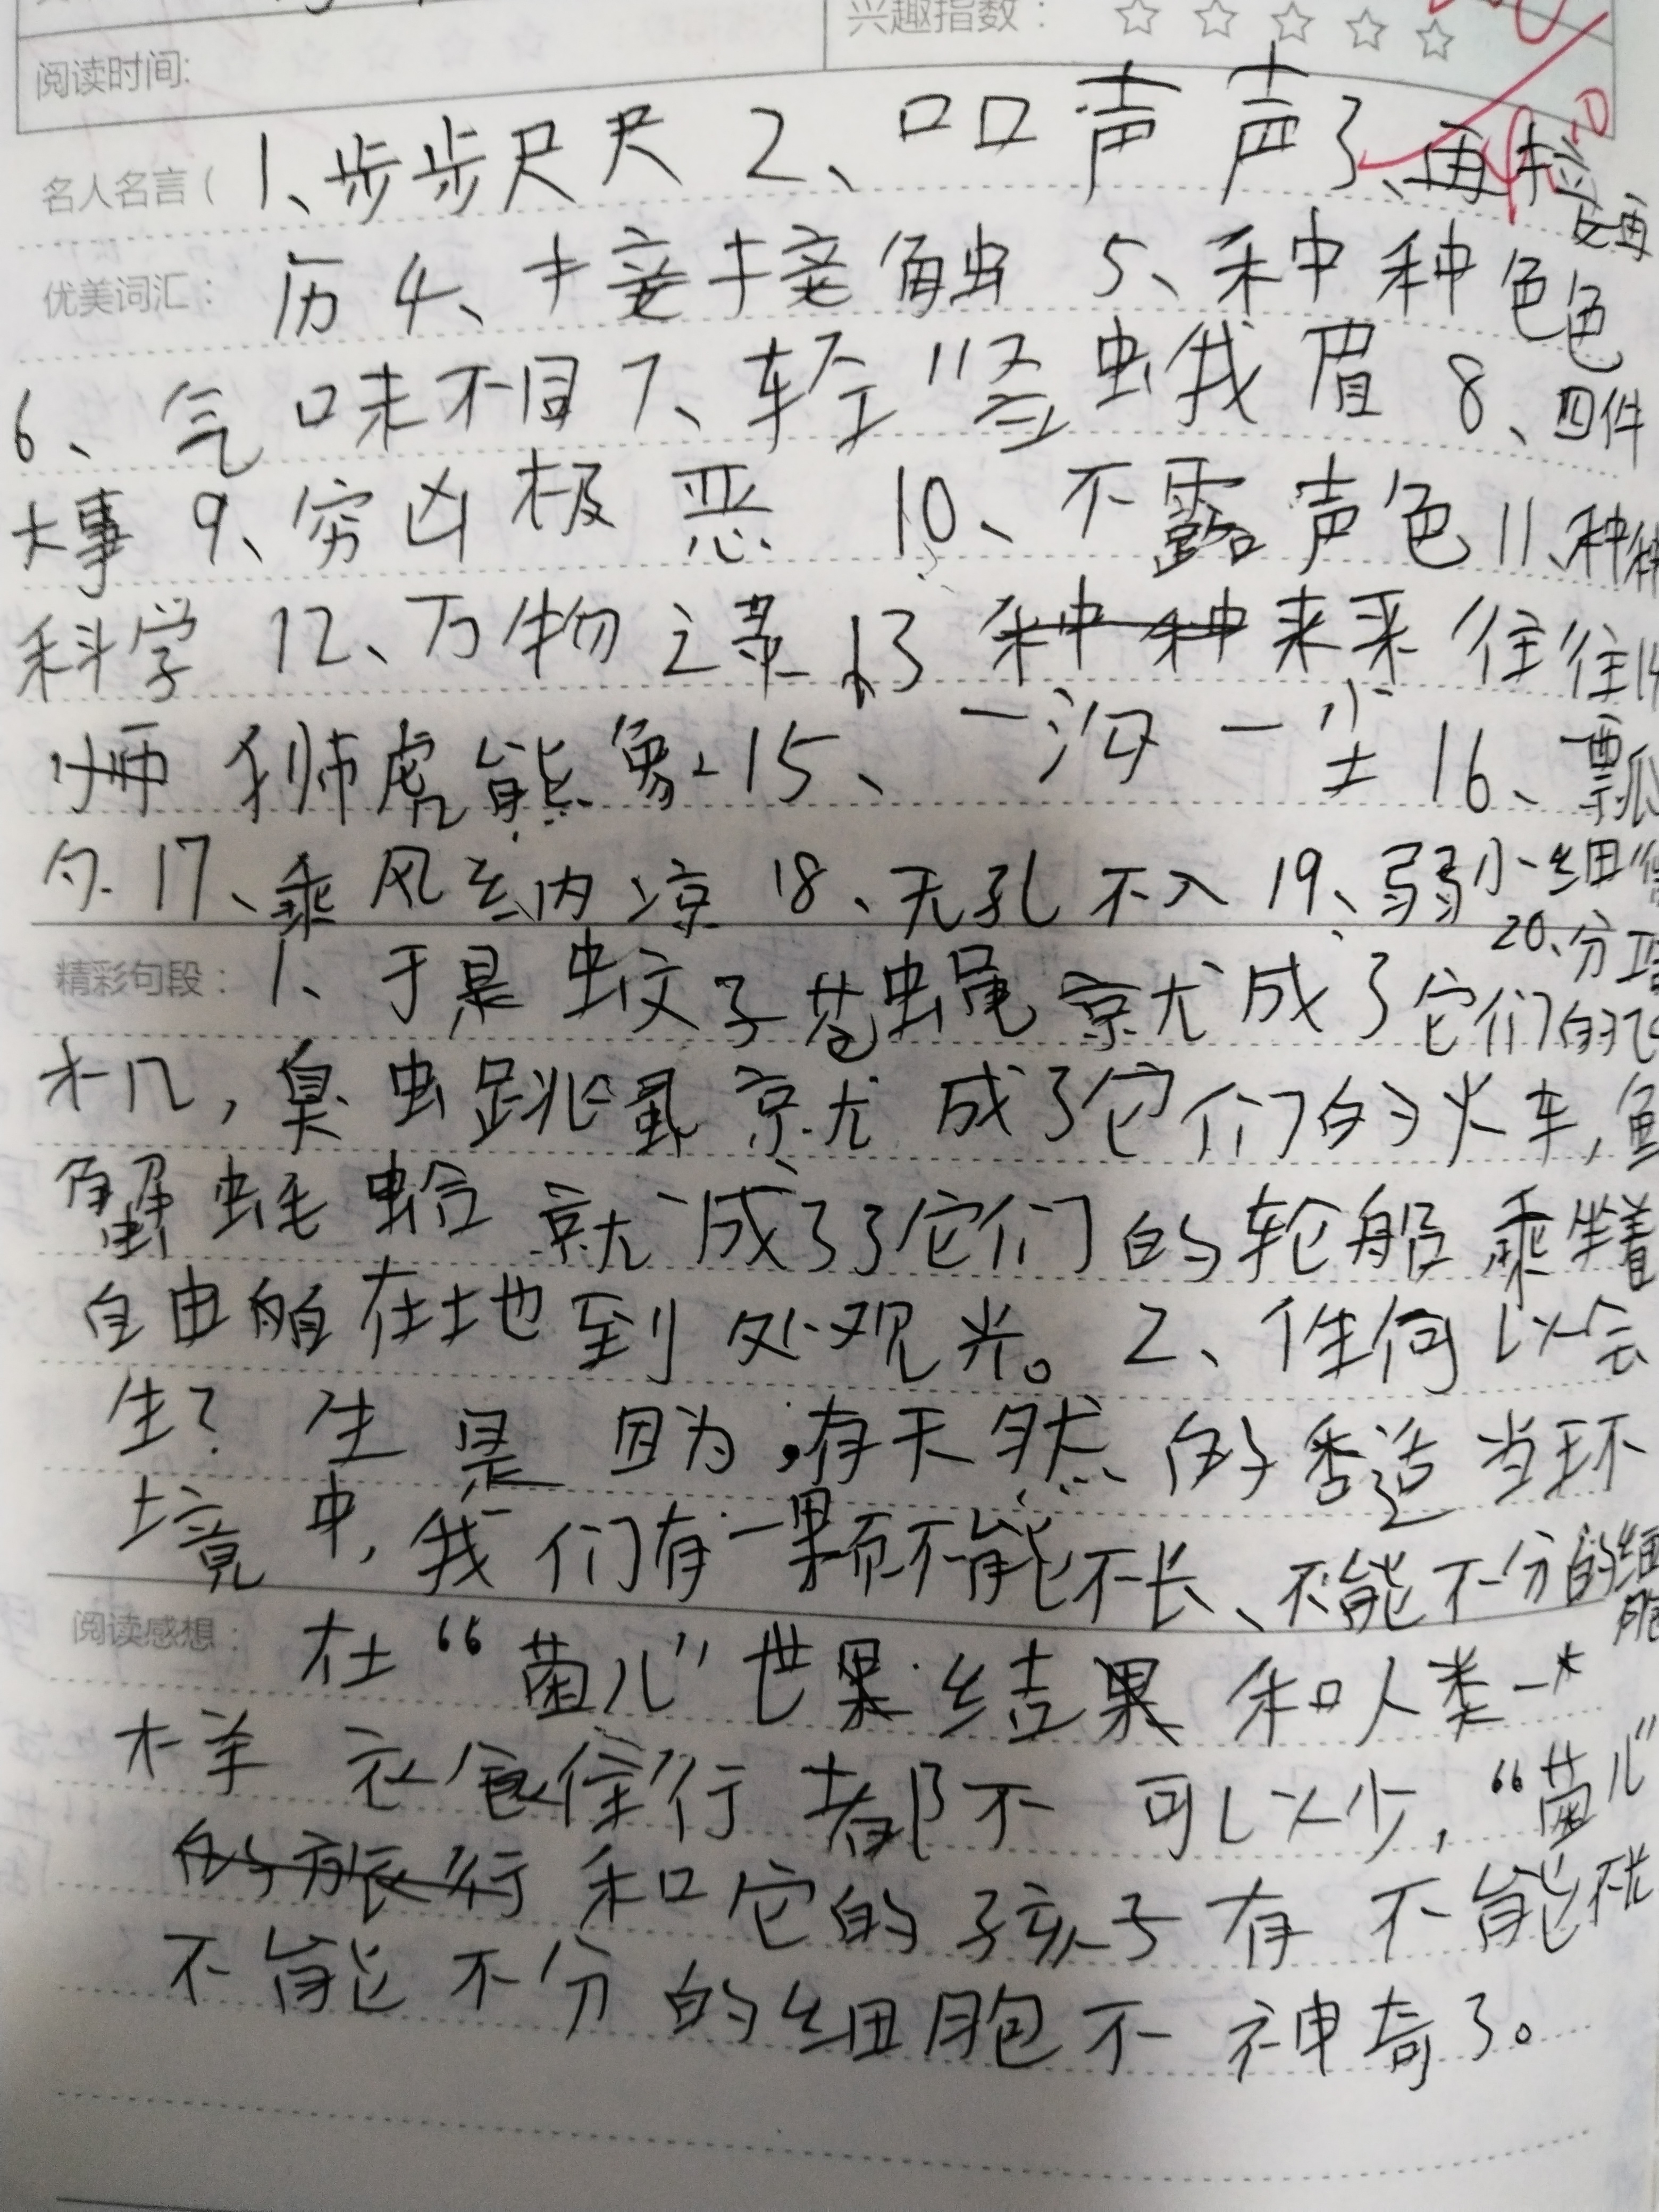 兴趣指数：
阅读时间:
名人名言（ 1、步步尺尺 2、口口声声 3、再
优美词汇： 历 4、接接触 5、种种色色
6、气味不同 7、轻 蛾眉 8、四件
大事 9、穷凶极恶 10、不露声色 11、种种
科学 12、万物之灵 13 种种来来往往 14
狮虎熊象 15、一沟一尘 16、瓢
勺 17、乘风纳凉 18、无孔不入 19、弱小细
20、分
精彩句段： 1、于是蚊子苍蝇就成了它们的飞
机，臭虫跳虱就成了它们的火车,鱼
蟹蚝蛤就成了了它们的轮船乘坐着
自由自在地到处观光。2、性何以会
生？生是因为,有天然的 适当环
境中,我们有一颗不能不长、不能不分的细
胞
阅读感想： 在“菌儿”世界结果和人类一
样 衣食住行都不可以少,“菌儿”
的旅行和它的孩子有不能不长
不能不分的细胞不神奇了。